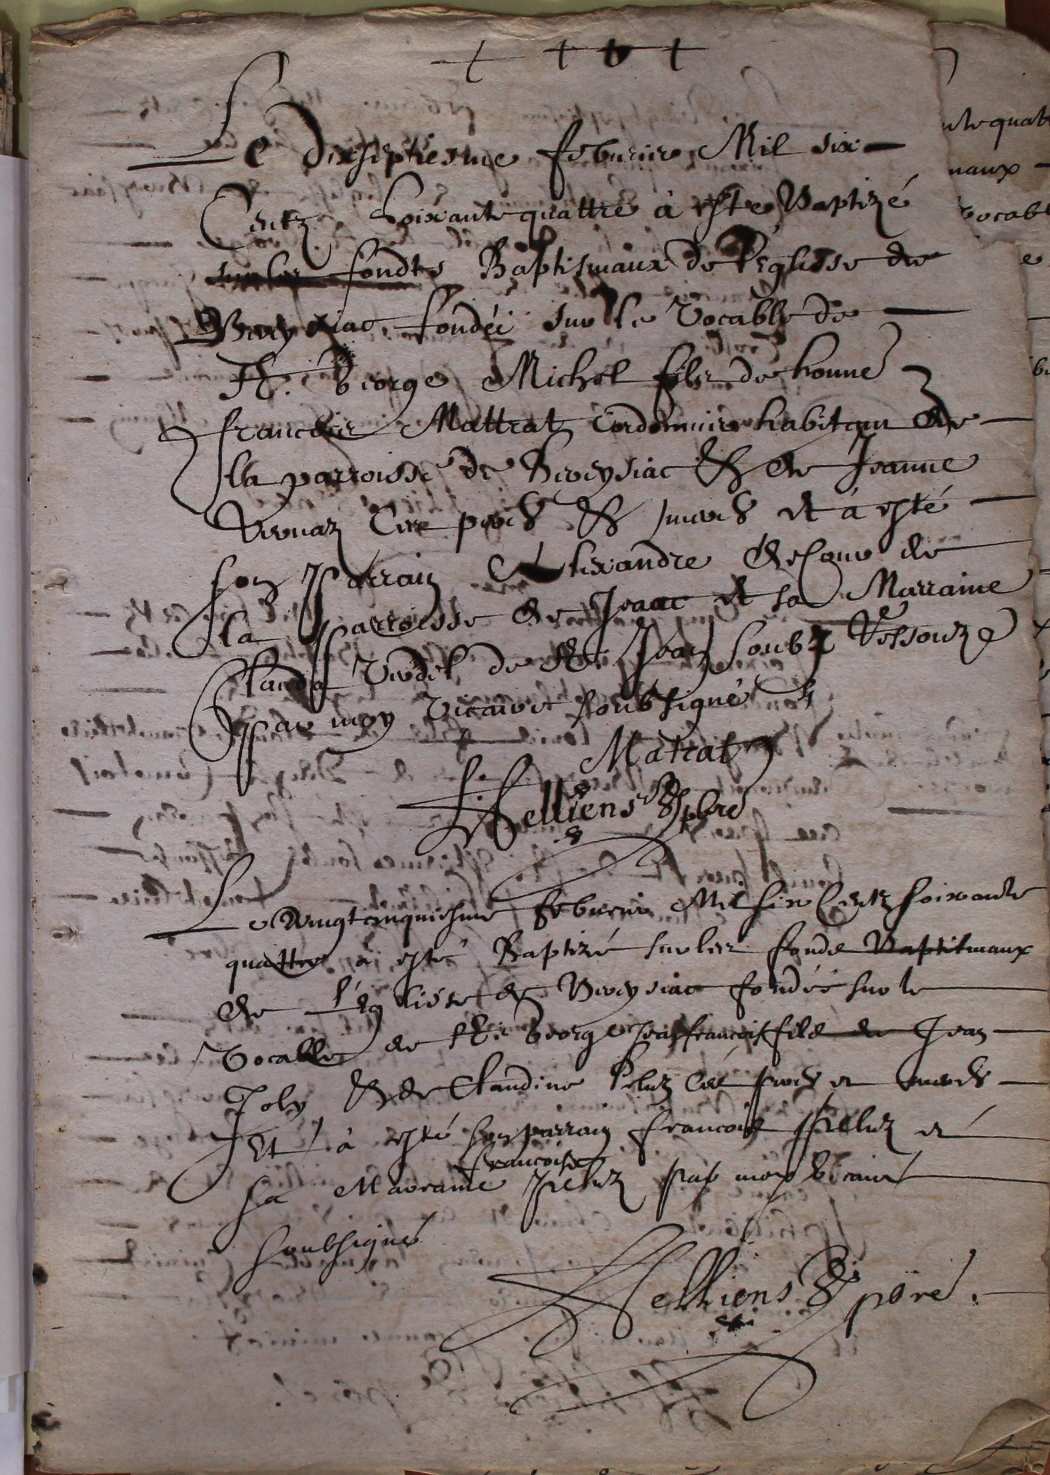 Le dixseptiesme febvrier Mil six
Centz Soixante quattre à esté Baptizé
sur les fondts Baptismaux de l'eglisse de
Broysiac fondéé sur le Vocable de
St. George Michel fils de honne
francois Mattrat Cordonnier habitant de
la parroisse de Broeysiac & de Jeanne
ses pere & mere et à esté
son Parrain Alexandre de
la Parroisse de et sa Marraine
Clauda de St. Jean soubz Vessouz
Par moy Vicaire soubsigné
Matrat
Helliens pbre
Le Vingtcinquiesme febvrier Mil six Centz soixante
quattre à esté Baptizé sur les fonds Baptismaux
de l'eglise de Broeysiac fondéé sur le
Vocable de St. George Jean francois fils de Jean
Joly & de Claudine Peluz ses pere et mere
Et à esté son parrain francois Peluz et
francoise
sa Marraine Peluz par moy Vicaire
soubsigné
Helliens pbre.
ute quat
maux
Vocabl
e